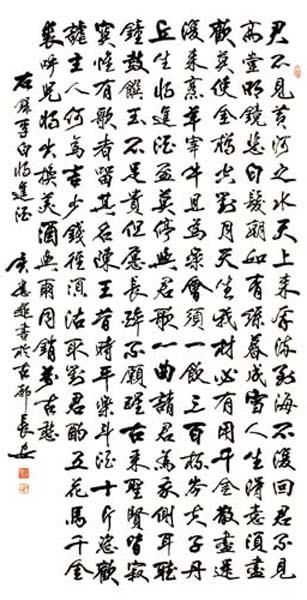 君不見黃河之水天上來奔流到海不復回君不見
高堂明鏡悲白髮朝如青絲暮成雪人生得意須盡
歡莫使金樽空對月天生我材必有用千金散盡還
復來烹羊宰牛且為樂會須一飲三百杯岑夫子丹
丘生將進酒君莫停與君歌一曲請君為我側耳聽
鐘鼓饌玉不足貴但願長醉不願醒古來聖賢皆寂
寞惟有飲者留其名陳王昔時宴平樂斗酒十千恣歡
謔主人何為言少錢徑須沽取對君酌五花馬千金
裘呼兒將出換美酒與爾同銷萬古愁
右錄李白將進酒 書於古都長安